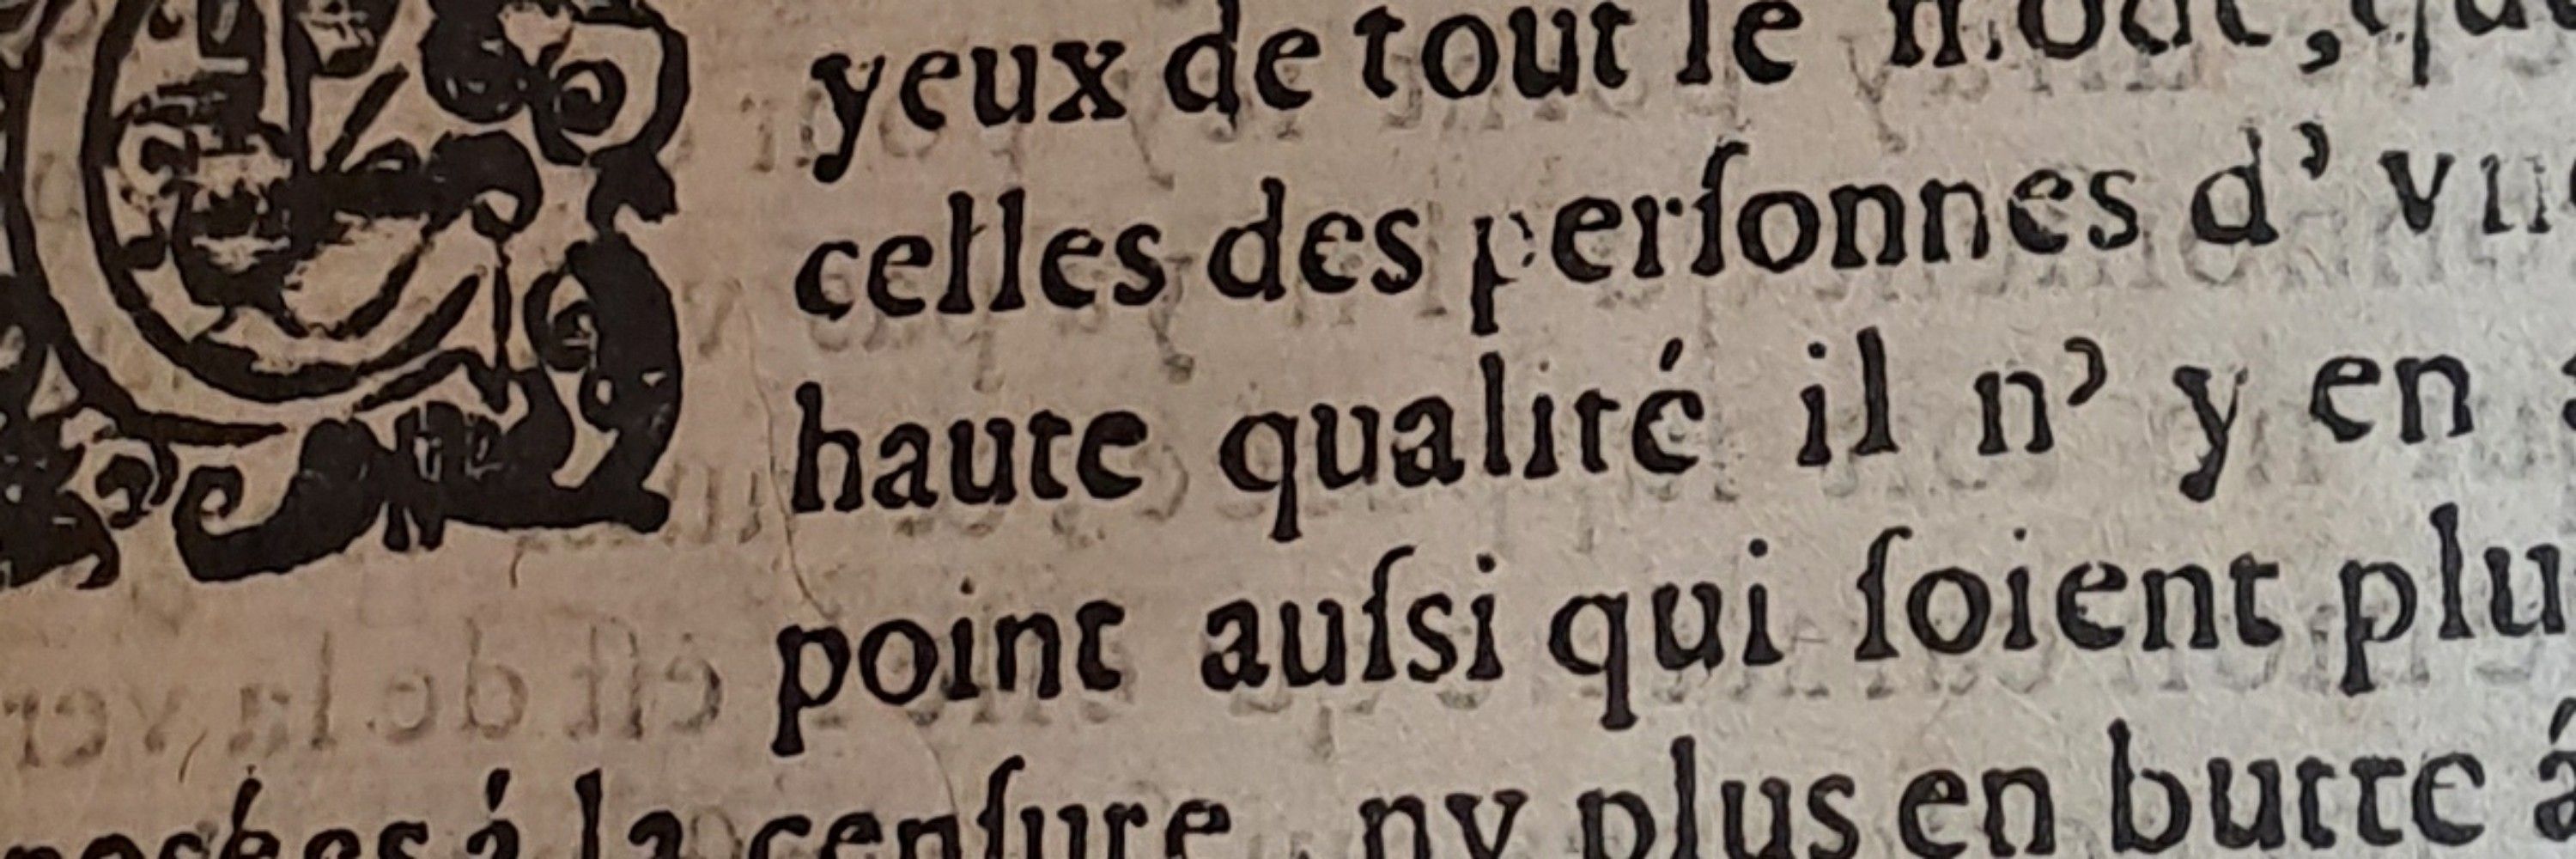 yeux de tout le mõde, que
celles des perſonnes d’ vne
haute qualité il n’ y en a
point auſsi qui ſoient plu
poſées á la cenſure, ny plus en butte á